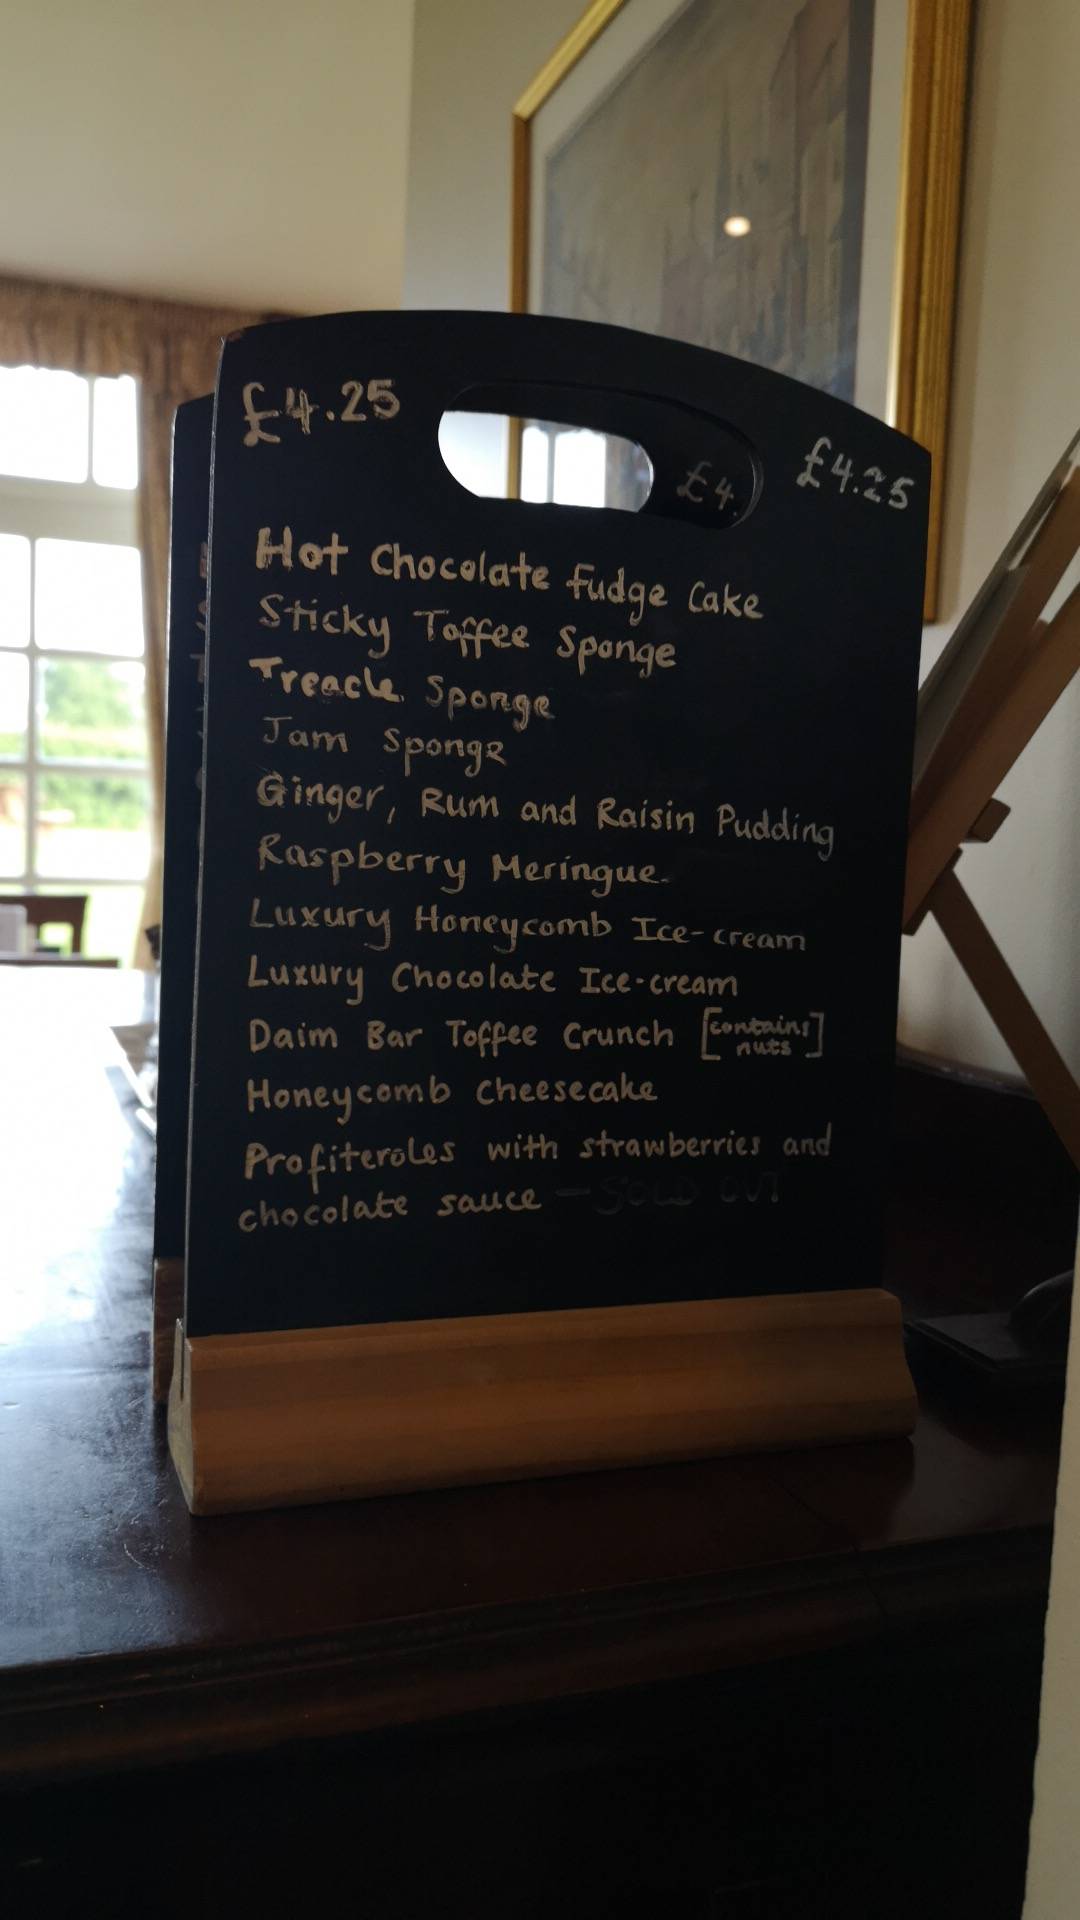 £4.25
£4.
£4.25
Hot Chocolate Fudge Cake
Sticky Toffee Sponge
Treacle Sponge
Jam Sponge
Ginger, Rum and Raisin Pudding
Raspberry Meringue
Luxury Honeycomb Ice-cream
Luxury Chocolate Ice-cream
Daim Bar Toffee Crunch [contains
nuts]
Honeycomb Cheesecake
Profiteroles with strawberries and
chocolate sauce - SOLD OUT